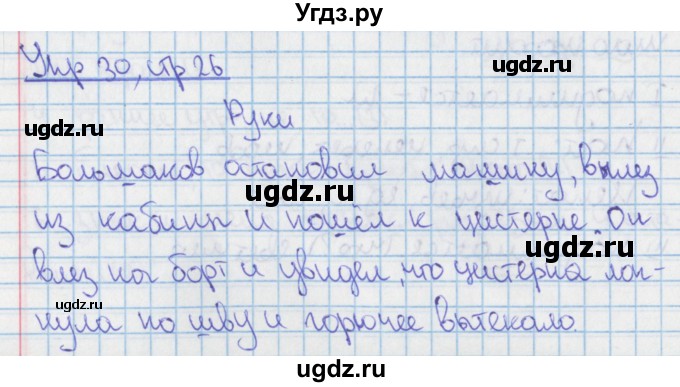 Угдз.ру
Упр 30, стр 26
Руки
Большаков остановил машину, вылез
из кабины и пошёл к цистерне. Он
влез на борт и увидел, что цистерна лоп-
нула по шву и горючее вытекало.
ugdz.ru
ugdz.ru
ugdz.ru
ugdz.ru
ugdz.ru
ugdz.ru
ugdz.ru
ugdz.ru